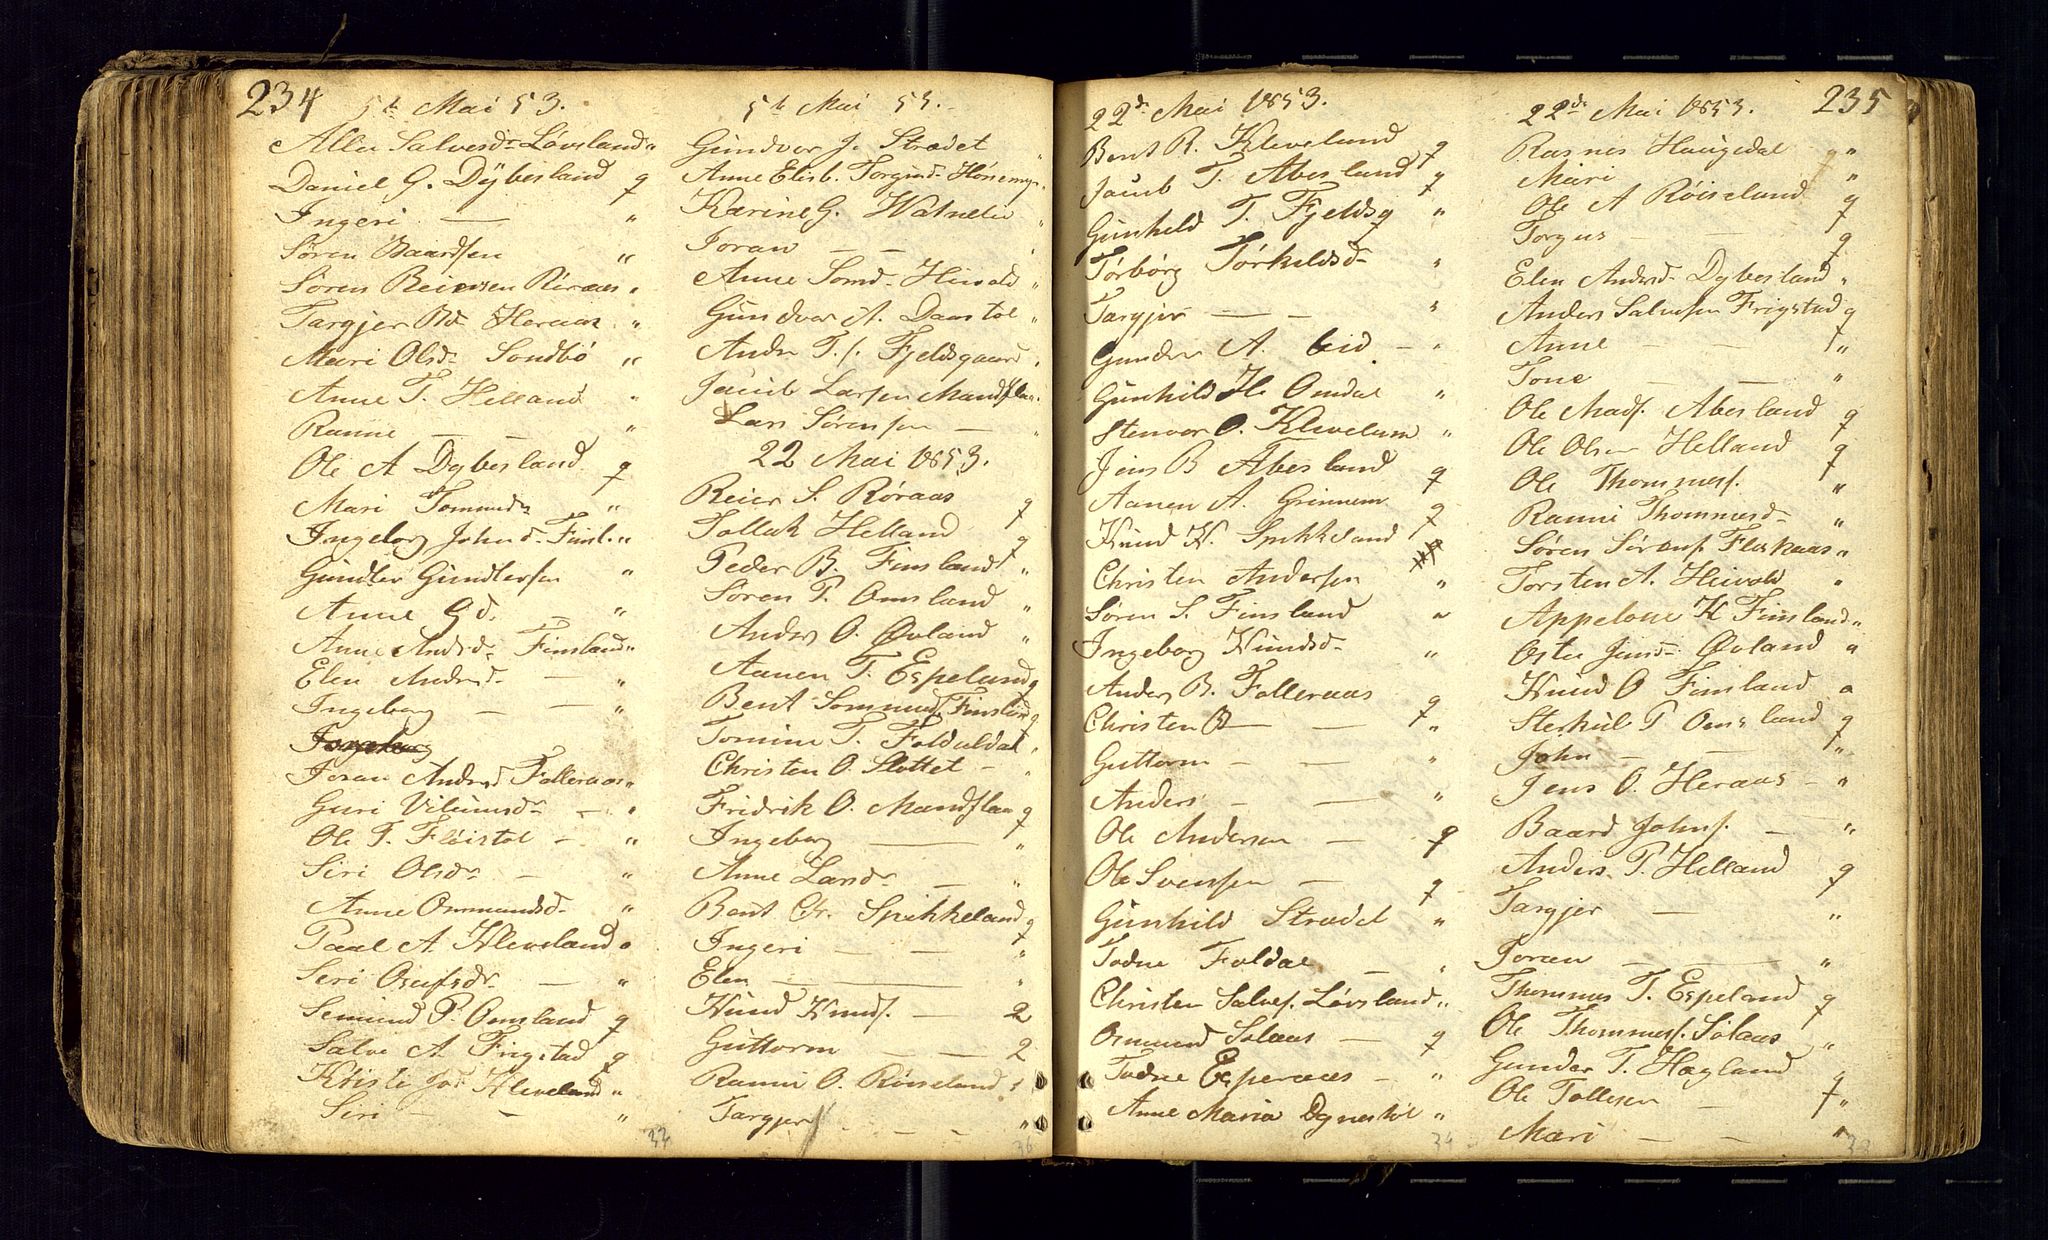 234
5t Mai 53.
Alle Salvesdr Løvsland "
Daniel G. Dybesland q
Ingeri — "
Søren Baardsen "
Søren Reiersen Røraas "
Targjer Bd Heraas "
Mari Olsdr Sondbø "
Anne T. Helland "
Ranne — — "
Ole A Dybesland q
Mari Tommesdr "
Ingeborg Johnsd. Finsl. "
Gundler Gundlersen "
Anne Gd. — "
Anne Andsdr Finsland "
Elen Andersd — "
Ingeborg — — "
Joran Andersd Folleraas "
Guri Vilumsdr — "
Ole T. Fløistol — "
Siri Olsdr — "
Anne Ommundsd. "
Paal A Kleveland "
Siri Osufsdr — "
Semund P. Omsland q
Salve A. Frigstad q
Kristi Jo Kleveland "
Siri — — "
32
5t Mai 53.
Gundvor J. Strædet "
Anne Elisb. Torginsd. Honsemyr "
Karine G. Watnelie "
Joran — — "
Anne Somd. Heivold "
Gundvor A. Daastol "
Andr T.s. Fjeldsgaard "
Jacob Larsen Mandflaa "
Lars Sørensen — "
22 Mai 1853.
Reier S. Røraas q
Tollak Helland q
Peder B. Finsland "
Søren P. Omsland "
Anders O. Øvland "
Aanen T. Espeland q
Bent Sommunds. Finsland q
Tomine T. Foldaldal "
Christen O. Slottet — "
Fridrik O. Mandflaa q
Ingeborg — "
Anne Larsdr — "
Bent Chr. Spikkeland q
Ingeri — — "
Elen — "
Knud Knuds. — 2
Guttorm — — 2
Ranni O. Røiseland "
Targjer — — — "
36
22de Mai 1853.
Bent R. Kleveland q
Jacob T. Abesland q
Gunhild T. Fjeldsg "
Torbørg Torkildsd. "
Targjer — — "
Gunder A. Eid — "
Gunhild H. Omdal "
Stenvor O. Klevelum "
Jens B Abesland q
Aanen A. Grinnem q
Knud K. Spikkeland
Christen Andersen "
Søren S. Finsland "
Ingeborg Knudsd. "
Anders B. Folleraas q
Christen B — — "
Guttorm — — "
Anders — — "
Ole Andersen — q
Ole Svensen — q
Gunhild Strædet "
Todne Foldal — "
Christen Salves. Løvsland "
Omund Solaas — q
Todne Esperaas — "
Anne Maria Dynestøl "
34
22de Mai 1853.
235
Rasmes Haugedal q "
Mari "
Ole A Røiseland q
Torgus — — q
Elen Andersd. Dybesland "
Anders Salvesen Frigstad q
Anne — — "
Tone — — "
Ole Mads. Abesland q
Ole Olsen Helland q
Ole Thommess. "
Ranni Thommesd. "
Søren Sørens. Fleskaas "
Torsten A. Heivold "
Appelone K Finsland "
Oste Jensd. Øvland "
Knud O Finsland "
Sterkul P Omsland q
John — — "
Jens O. Heraas — "
Baard Johns. — "
Anders P. Helland q
Targjer — "
Joren — — "
Thommes T. Espeland q
Ole Thommess. Solaas "
Gunder T. Hægland q
Ole Tollesen — "
Mari — — "
32